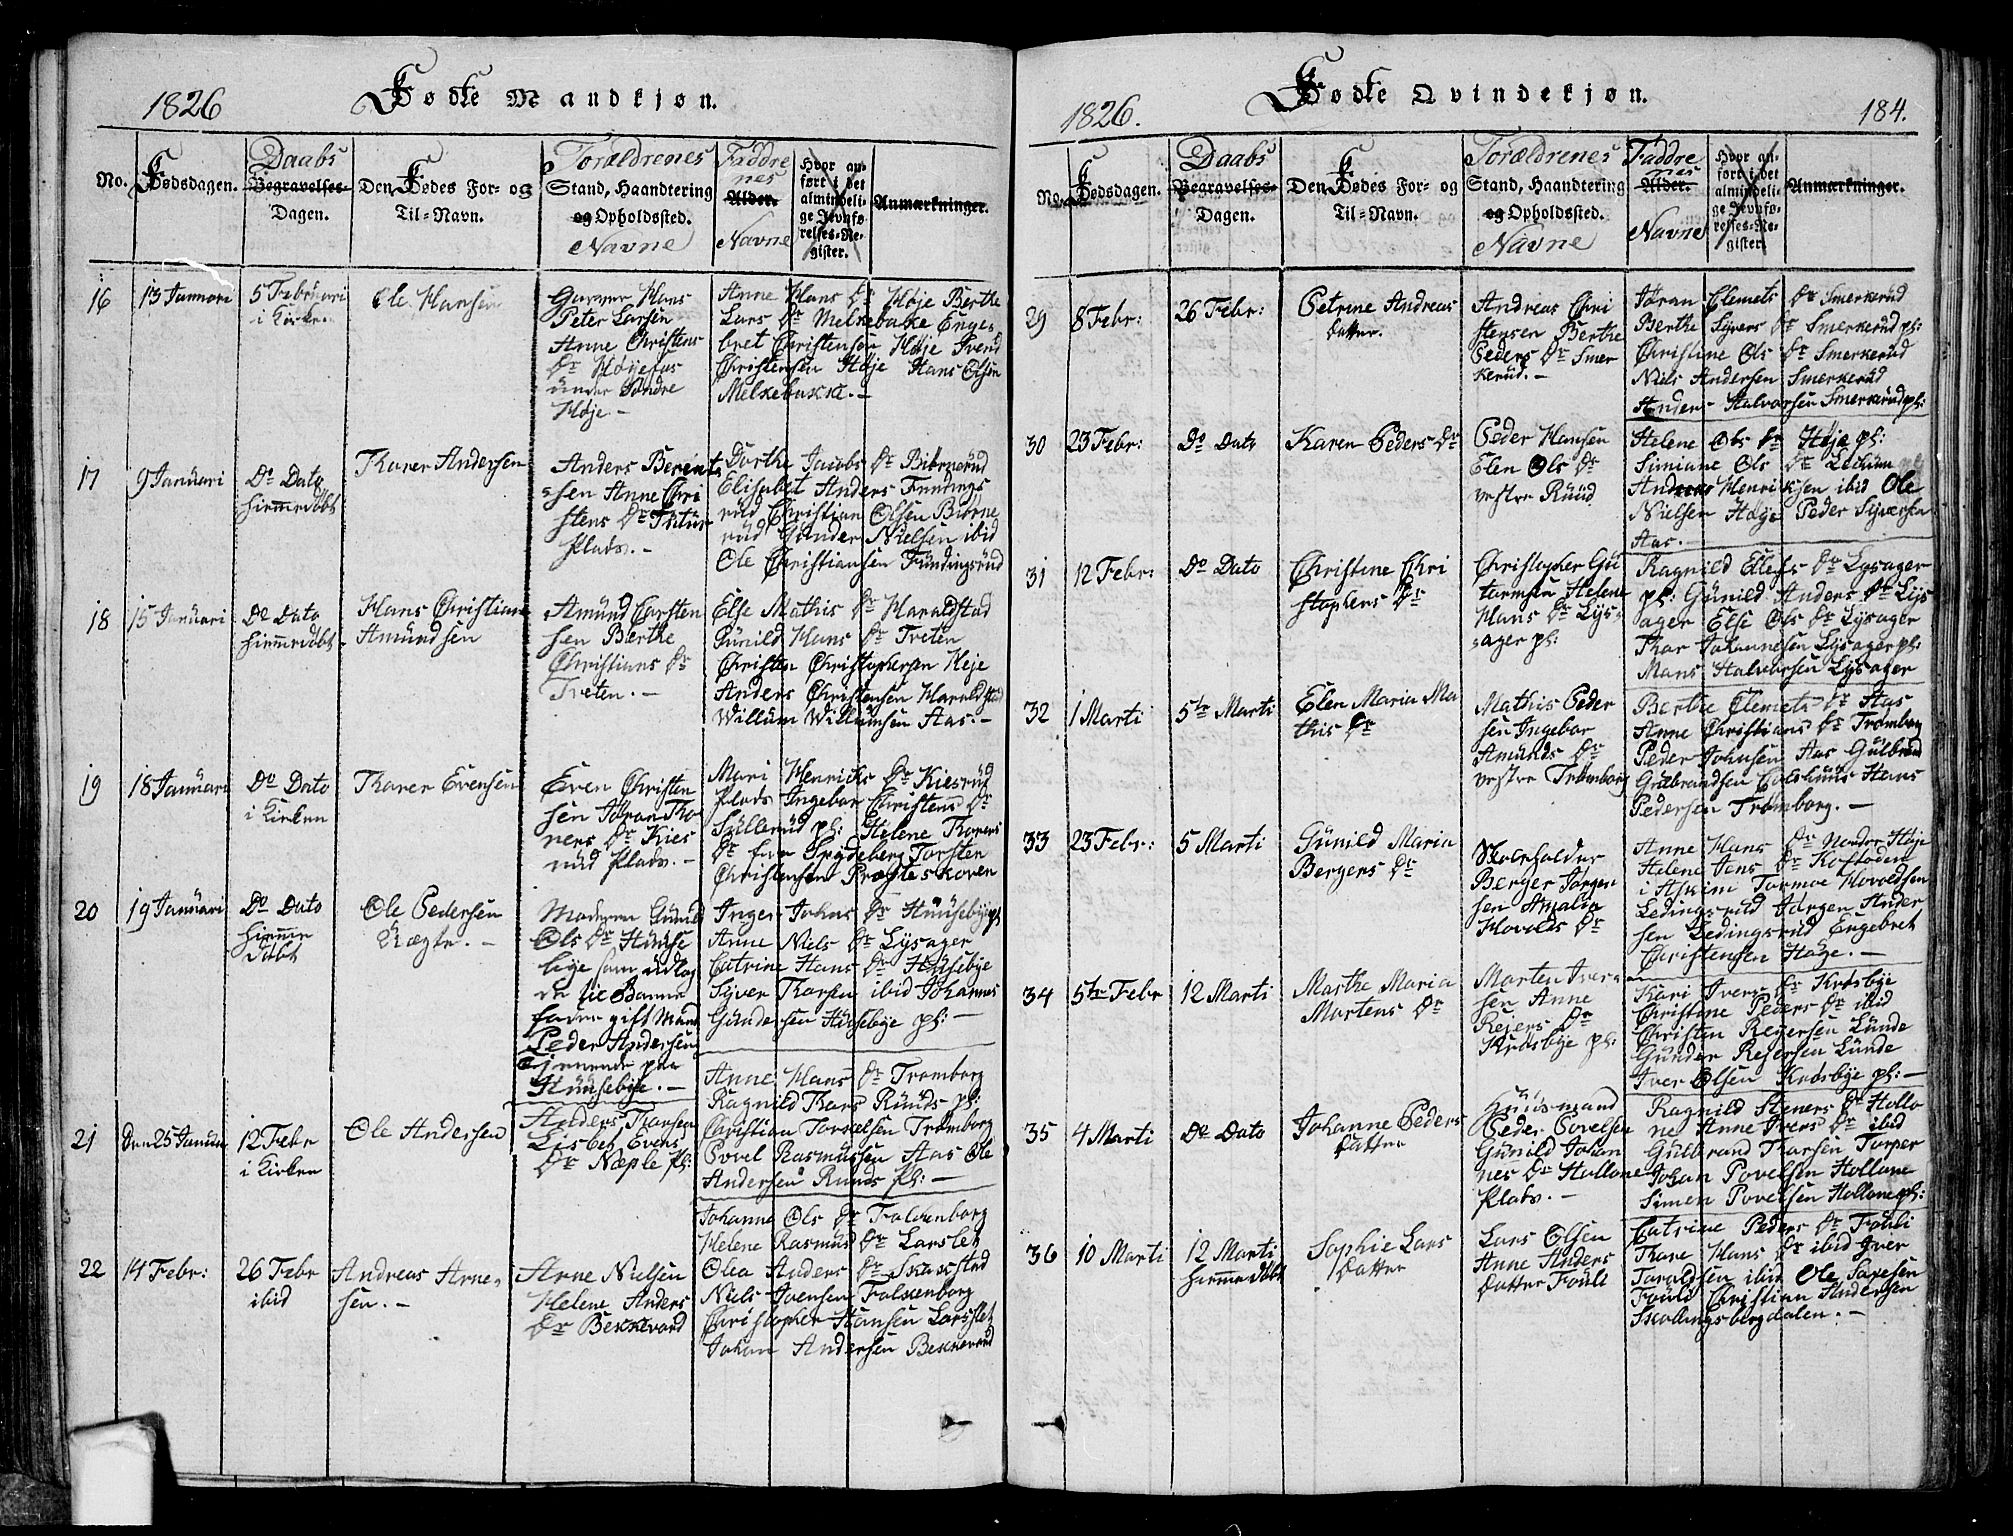 1826
Fødte Mandkjøn.
No.
Fødselsdagen.
Daabs
Begravelses-
Dagen.
Den Fødtes For- og
Til-Navn.
Forældrenes
Stand, Haandtering
og Opholdssted.
Navne
Faddre
nes
Alder.
Navne
Hvor an-
ført i det
almindeli-
ge Jevnfø-
relses-Re-
gister.
Anmærkninger.
16
13 Januari
5 Februari
i Kirken
Ole Hansen
Hans
Peter Larsen
Anne Christens
Dr Højefas
under Søndre
Høje -
Anne Hans Dr Høje Berthe
Lars Dr Melkebakke Enge-
bret Christensen Høje Svend
Christensen Høje Hans Olsen
Melkebakke. -
17
9 Januari
Do Dato
hiemmedøbt
Thorer Andersen
Anders Berent
sen Anne Chri
stens Dr
Plads. -
Dorthe Jacobs Dr Biørnerud
Elisabet Anders Fundings
rud Christian Olsen Biørne
rud Gunder Nielsen ibid
Ole Christiansen Fundingsrud
18
15 Januari
Do Dato
hiemmedøbt
Hans Christian
Amundsen
Amund Carsten
sen Berthe
Christians Dr
Tveten. -
Else Mathis Dr Haraldstad
Gunild Hans Dr Tveten
Christen Christophersen Heje
Anders Christensen Haraldstad
Willum Willumsen Aas. -
19
18 Januari
Do Dato
i Kirken
Thorer Evensen
Even Christen
sen Jøran Tho
rers Dr Kies
rud Plads. -
Mari Henriks Dr Kiesrud
Plads Ingebor Christens Dr
Sullerud pl: Helene Thorers
Dr fra Spydeberg Torsten
Christensen Præsteskoven
20
19 Januari
Do Dato
hiemme
døbt
Ole Pedersen
Uægte. -
Moderen Gunild
Ols Dr Huuse
bye som udlag
de til Barne
fader gift Mand
Peder Andersen
tjenende paa
Huusebye. -
Inger Johns Dr Huusebye pl
Anne Niels Dr Lysager
Catrine Hans Dr Husebye
Syver Thorsen ibid Johannes
Gundersen Husebye pl: -
21
Den 25 Januar
12 Febr
i Kirken
Ole Andersen
Anders Thorsen
Lisbet Evens
Dr Næple Pl:
Anne Hans Dr Tromborg
Ragnild Thors Ruuds pl:
Christian Torkelsen Tromborg
Povel Rasmussen Aas Ole
Andersen Ruuds Pl: -
22
14 Febr:
26 Febr
ibid
Andreas Arne-
sen. -
Arne Nielsen
Helene Anders
Dr Bekkevard
Johanne Ols Dr Falkenborg
Helene Rasmus Dr Larslet
Olea Anders Dr Skakstad
Niels Ivensen Falkenborg
Christopher Hansen Larsslet
Johan Andersen Bekkevard
1826.
Fødte Qvindekjøn.
184.
No.
Fødselsdagen.
Daabs
Begravelses-
Dagen.
Den Fødtes For- og
Til-Navn.
Forældrenes
Stand, Haandtering
og Opholdssted.
Navne
Faddre
nes
Alder.
Navne
Hvor an-
ført i det
almindeli-
ge Jevnfø-
relses-Re-
gister.
Anmærkninger.
29
8 Febr:
26 Febr:
Petrine Andreas
Datter.
Andreas Chri
stensen Berthe
Peders Dr Smer
kerud. -
Jøran Clemets Dr Smerkerud
Berthe Syvers Dr Smerkerud pl:
Christine Ols Dr Smerkerud
Niels Andersen Smerkerud
Anders Halvorsen Smerkerud pl:
30
23 Febr:
Do Dato
Karen Peders Dr
Peder Hansen
Elen Ols Dr
vestre Ruud
Helene Ols Dr Høje pl:
Simiane Ols Dr
Andreas Henriksen ibid Ole
Nielsen Høje Peder Syversen
Aas.
31
12 Febr:
Do Dato
Christine Chri
stophers Dr
Christopher Gu
tormsen Helene
Hans Dr Lys-
ager pl:
Ragnild Ellefs Dr Lysager
pl: Gunild Anders Dr Lys
ager Else Ols Dr Lysager
Thor Johannesen Lysager pl:
Mons Halvorsen Lysager
32
1 Marti
5te Marti
Elen Maria Ma
this Dr
Mathis Peder
sen Ingebor
Amunds Dr
vestre Tromborg
Berthe Clemets Dr Aas
Anne Christians Dr Tromborg
Peder Johnsen Aas Gulbrand
Gulbrandsen Hans
Pedersen Tromborg. -
33
23 Febr:
5 Marti
Gunild Maria
Bergers Dr
Skoleholder
Berger Jørgen
sen Amalia
Hovolds Dr
Anne Hans Dr Nordre Høje
Helene Jens Dr Koftoden
i Askim Tormoe Hovoldsen
Ledingsrud Jørgen Ander
sen Ledingsrud Engebret
Christensen Høge. -
34
5te Febr
12 Marti
Marthe Maria
Martens Dr
Marten Iver-
sen Anne
Reiers Dr
Krosbye pl:
Kari Ivers Dr Krosbye
Christine Peders Dr ibid
Christen Reyersen Lunde
Gunder Reyersen Lunde
Iver Olsen Krosbye pl: -
35
4 Marti
Do Dato
Johanne Peders
Datter
Huusmand
Peder Povelsen
Gunild Johan
nes Dr Hollone
Plads. -
Ragnild Steners Dr Hollo
ne Anne Ivers Dr ibid
Gulbrand Thorsen Torper
Johan Povelsen Hollone
Simen Povelsen Hollone pl:
36
10 Marti
12 Marti
hiemmedøbt
Sophie Lars
Datter
Lars Olsen
Anne Anders
Datter Fouli
Catrine Peders Dr Fouli
Thore Hans Dr ibid Iver
Taraldsen ibid Ole Saxesen
Fouli Christian Andersen
Skollingsbergdalen. -